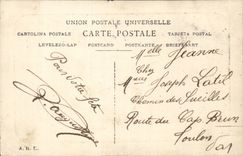 UNION POSTALE UNIVERSELLE
CARTOLINA POSTALE CARTE POSTALE TARJETA POSTAL
LEVELEZO-LAP POSTCARD POSTKARTE BRIEFKART
Melle Jeanne
Chez
Mr Joseph Latil
Chemin des
Route du Cap Brun
Toulon
Var
Pour votre fête
A. N. L.